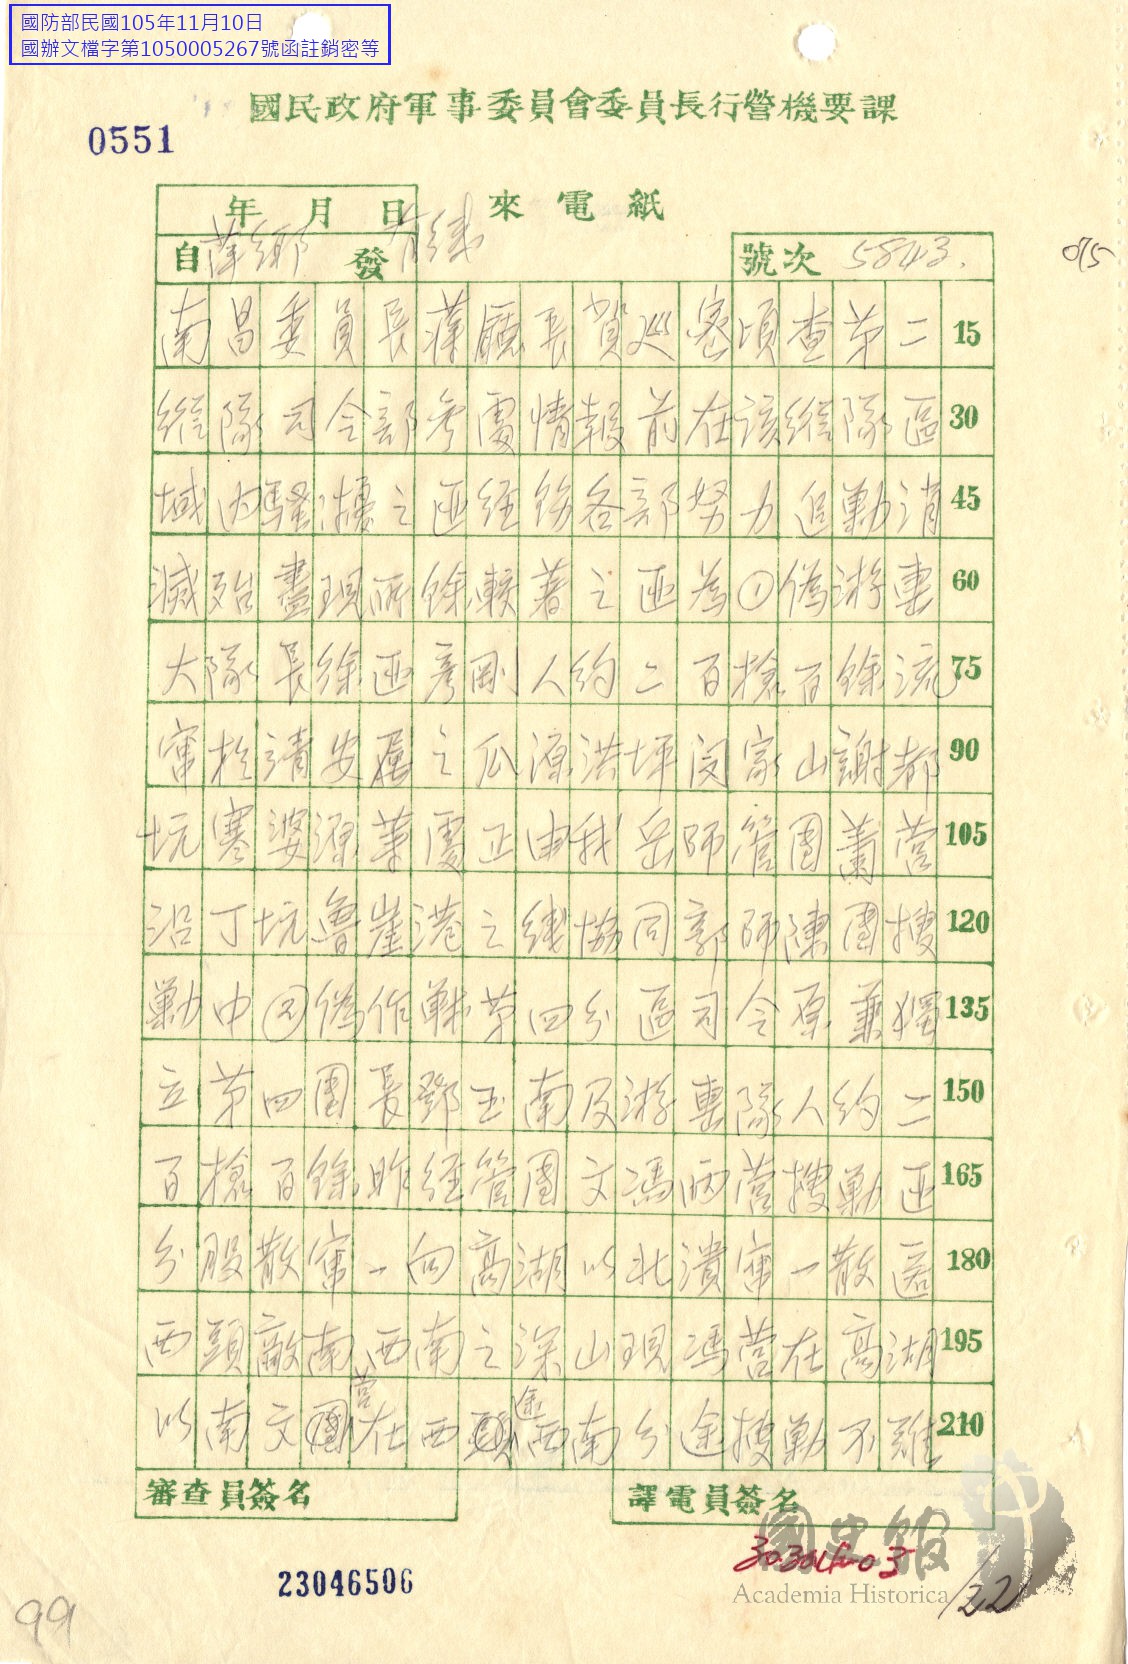 國防部民國105年11月10日
國辦文檔字第1050005267號函註銷密等
國民政府軍事委員會委員長行營機要課
0551
年 月 日 來電紙
自萍鄉發 有線 號次 5843.
075
南昌委員長蔣廳長賀巡密頃查第二 15
縱隊司令部參處情報前在該縱隊區 30
域內騷擾之匪經飭各部努力追勦消 45
滅殆盡現所餘較著之匪為①偽游擊 60
大隊長徐匪彥剛人約二百槍百餘流 75
竄於靖安屬之瓜源洪坪闵家山謝都 90
坑寒婆源等處正由我岳師管團蕭營 105
沿丁坑魯崖港之線協同郭師陳團搜 120
勦中②偽作戰第四分區司令原兼獨 135
立第四團長鄧玉南及游擊隊人約二 150
百槍百餘昨經管團文馮兩營搜勦匪 165
分股散竄一向高湖以北潰竄一散匿 180
西頭敵南西南之深山現馮營在高湖 195
以南文營在西頭迤西南分途搜勦不難 210
審查員簽名 譯電員簽名
國史館
Academia Historica
23046506
99
122